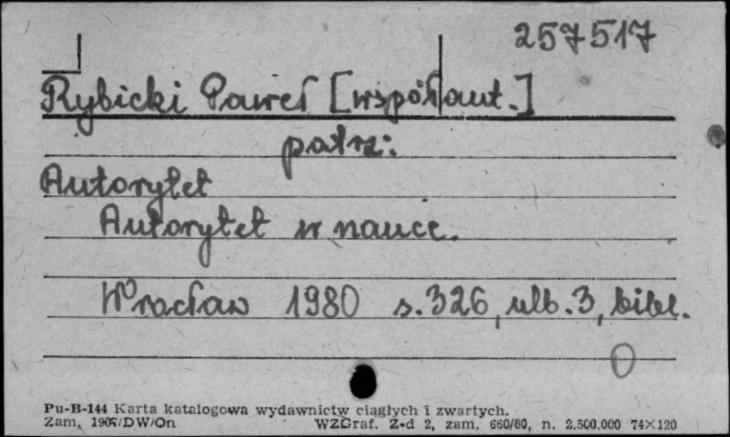 257517
Rybicki Paweł [współaut.]
patrz:
Autorytet
Autorytet w nauce.
Wrocław 1980 s. 326, nlb. 3, bibl.
Pu-B-144 Karta katalogowa wydawnictw ciągłych i zwartych.
Zam. /DW/On WZGraf. Z-d 2, zam. 660/80, n. 2.500.000 74×120